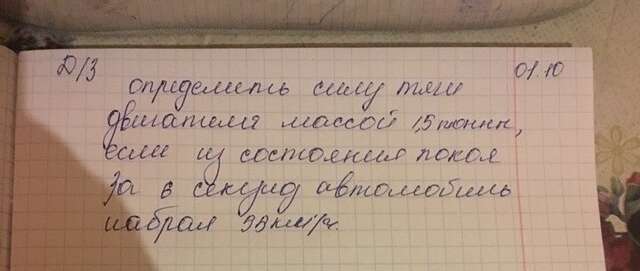 Д/З 01.10
определить силу тяги
двигателя массой 1,5 тонны,
если из состояния покоя
За 6 секунд автомобиль
набрал